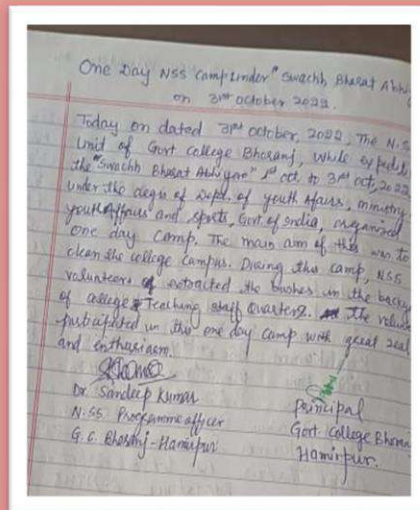 One Day NSS Camp Under "Swachh Bharat Abhi
on 31st October 2022.
Today on dated 31st October, 2022, The N.S
Unit of Govt College Bhoranj, while
the "Swachh Bharat Abhiyan" 1st oct. to 31st oct, 2022
under the aegis of Deptt. of youth Afairs, ministry
youth Affairs and sports, Govt. of India, organized
one day camp. The main aim of this was to
clean the college campus. During this camp, NSS
volunteers extracted the bushes in the backy
of college Teaching staff Quarters. the volun
participated in this one day camp with great zeal
and enthusiasm.
Dr. Sandeep Kumar
N.SS Programme officer
G.C. Bhoranj-Hamirpur
Principal
Govt. College Bhoran
Hamirpur.